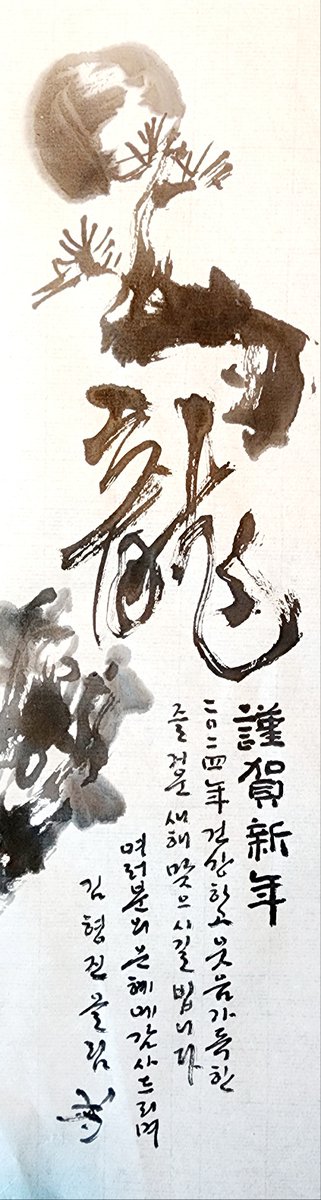 龍
謹賀新年
二〇二四年 건강하고 웃음가득한
즐거운 새해 맞으시길 빕니다
여러분의 은혜에 감사드리며
김형진 올림